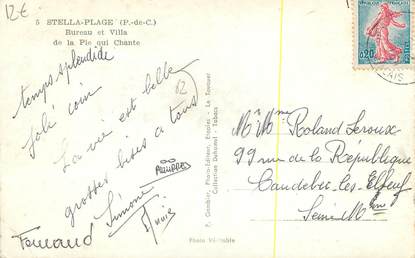 12€
5 STELLA-PLAGE (P.-de-C.)
Bureau et Villa
de la Pie qui Chante
temps splendide
Joli coin
La vie est belle
grosses bises a tous
Simone
Fernand
12
P. Gombier, Photo-Editeur, Etaples - Le Touquet
Collection Dehomel - Tabacs
Photo Véritable
REPUBLIQUE FRANÇAISE
0,20
POSTES
CALAIS
Mr Mme Roland Leroux
99 rue de la République
Caudebec-les-Elbeuf
Seine Mme